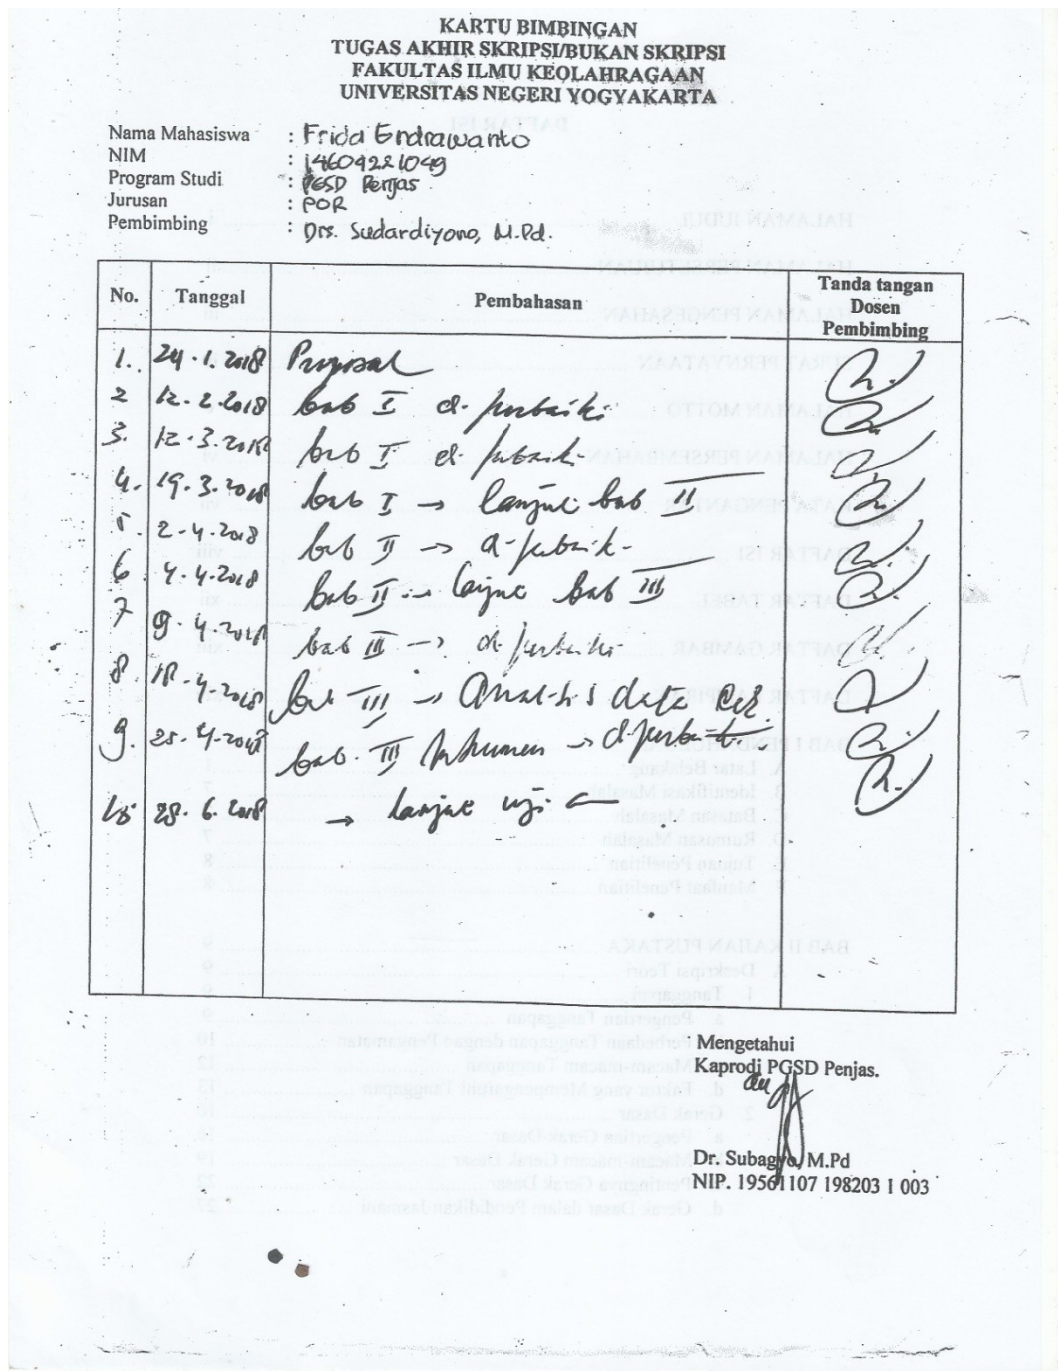 KARTU BIMBINGAN
TUGAS AKHIR SKRIPSI/BUKAN SKRIPSI
FAKULTAS ILMU KEOLAHRAGAAN
UNIVERSITAS NEGERI YOGYAKARTA
Nama Mahasiswa : Frida Endrawanto
NIM : 14604221049
Program Studi : PGSD Penjas
Jurusan : POR
Pembimbing : Drs. Sudardiyono, M.Pd.
No. Tanggal Pembahasan Tanda tangan Dosen Pembimbing
1. 24.1.2018 Proposal
2 12.2.2018 bab I di perbaiki
3. 12.3.2018 bab I di
4. 19.3.2018 bab I → lanjut bab II
5. 2-4-2018 bab II →
6 4.4.2018 bab II → lanjut bab III
7 9.4.2018 bab III → di perbaiki
8. 18.4.2018 bab III → Analisis data
9. 25.4.2018 bab III Instrumen →
10 28.6.2018 → lanjut uji
Mengetahui
Kaprodi PGSD Penjas.
Dr. Subagyo, M.Pd
NIP. 19561107 198203 1 003